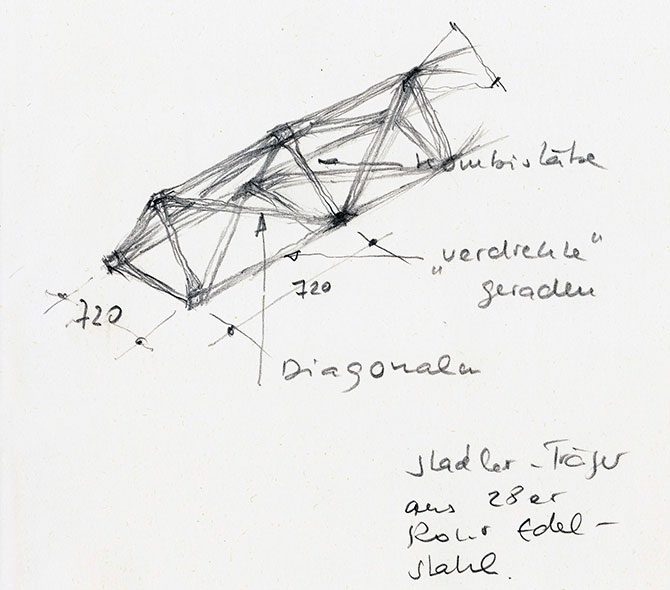 Kombistäbe
„verdrehte“
geraden
720
720
Diagonalen
Stadler-Träger
aus 28er
Rohr Edel-
stahl.